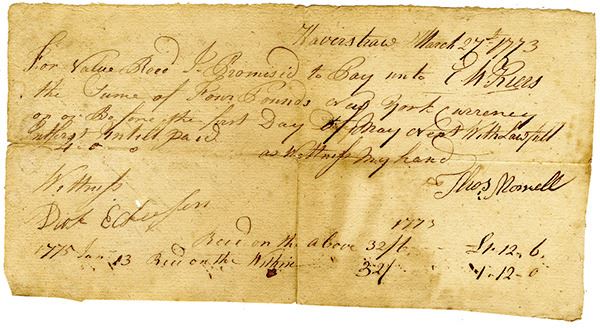 Haverstraw March 27th 1773
For Value Recd I Promised to Pay unto
the Sume of Four Pounds New York Currency
on or Before the first Day of May Next With Lawfull
Intrest until paid
4 - 0 - 0 as Wittness my hand
Thos Morrell
Wittness
1773
Recd on the above 32/6 £1.12.6
1775 Jan 13 Recd on the Within 32/ 1.12.0